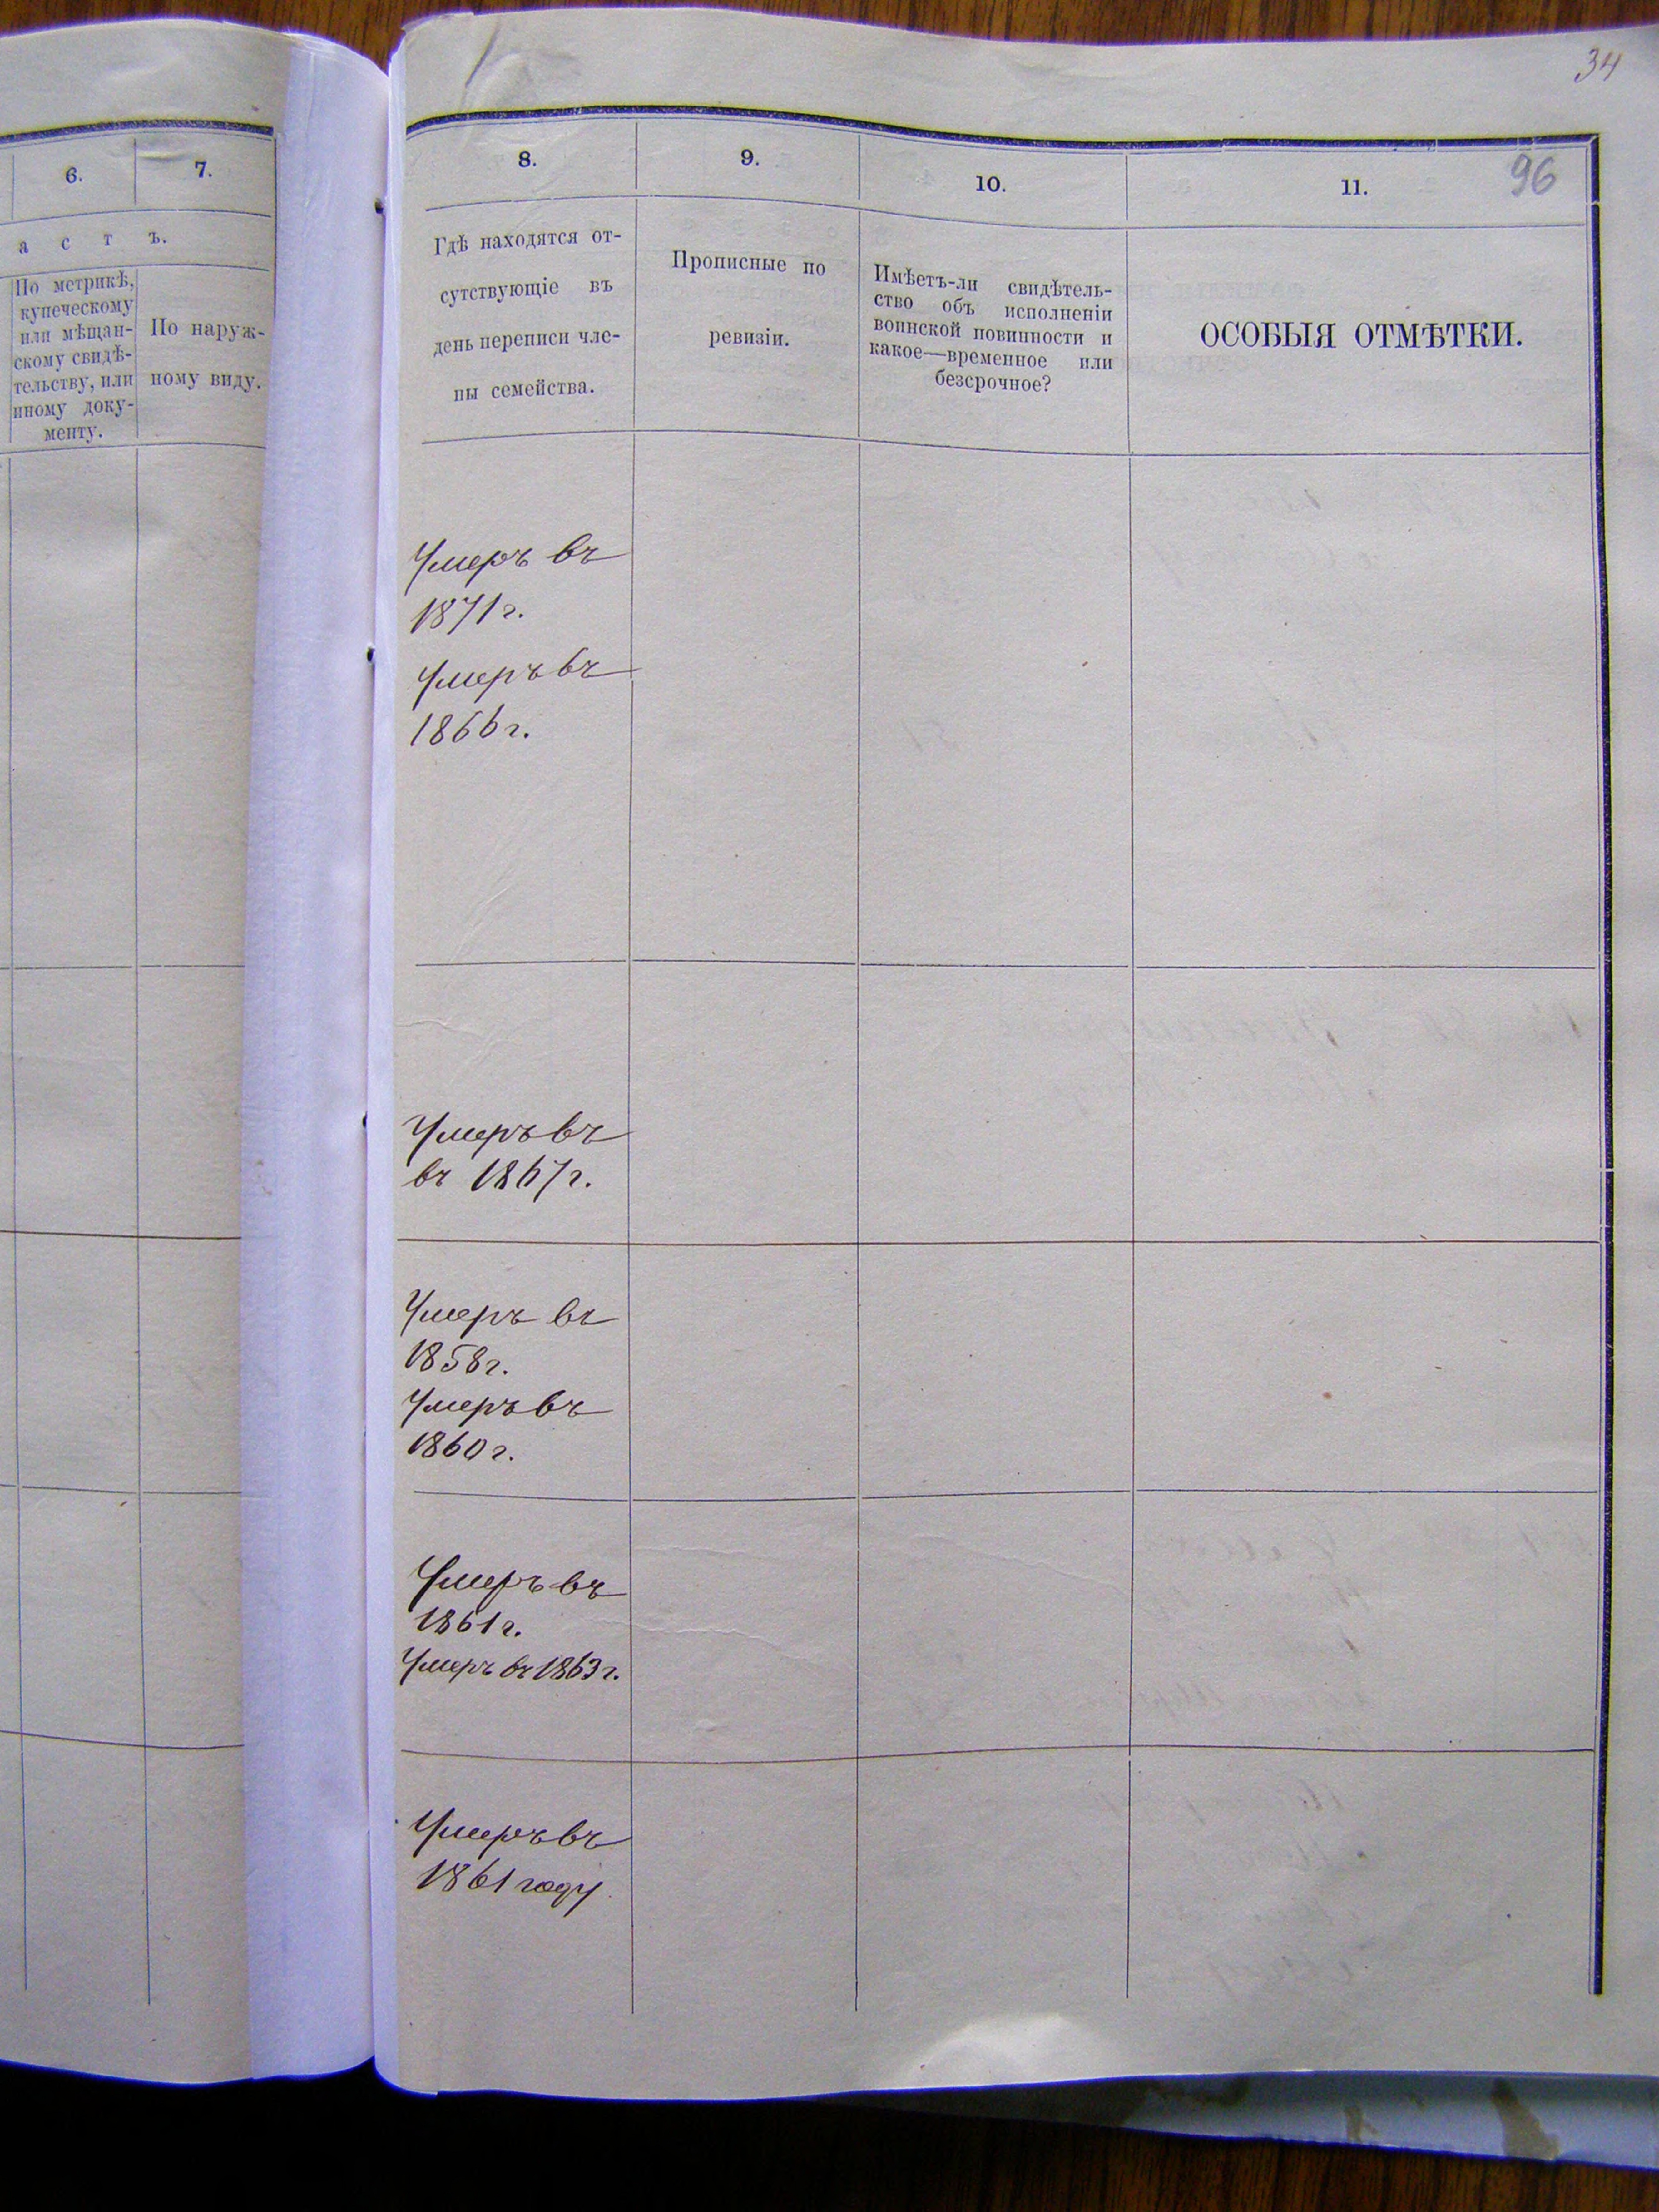 34
96
6.
7.
а с т ъ.
По метрикѣ,
купеческому
или мѣщан-
скому свидѣ-
тельству, или
иному доку-
менту.
По наруж-
ному виду.
8.
9.
10.
11.
Гдѣ находятся от-
сутствующіе въ
день переписи чле-
ны семейства.
Прописные по
ревизіи.
Имѣетъ-ли свидѣтель-
ство объ исполненіи
воинской повинности и
какое—временное или
безсрочное?
ОСОБЫЯ ОТМѢТКИ.
Умеръ въ
1871 г.
Умеръ въ
1866 г.
Умеръ въ
въ 1867 г.
Умеръ въ
1858 г.
Умеръ въ
1860 г.
Умеръ въ
1861 г.
Умеръ въ 1863 г.
Умеръ въ
1861 году